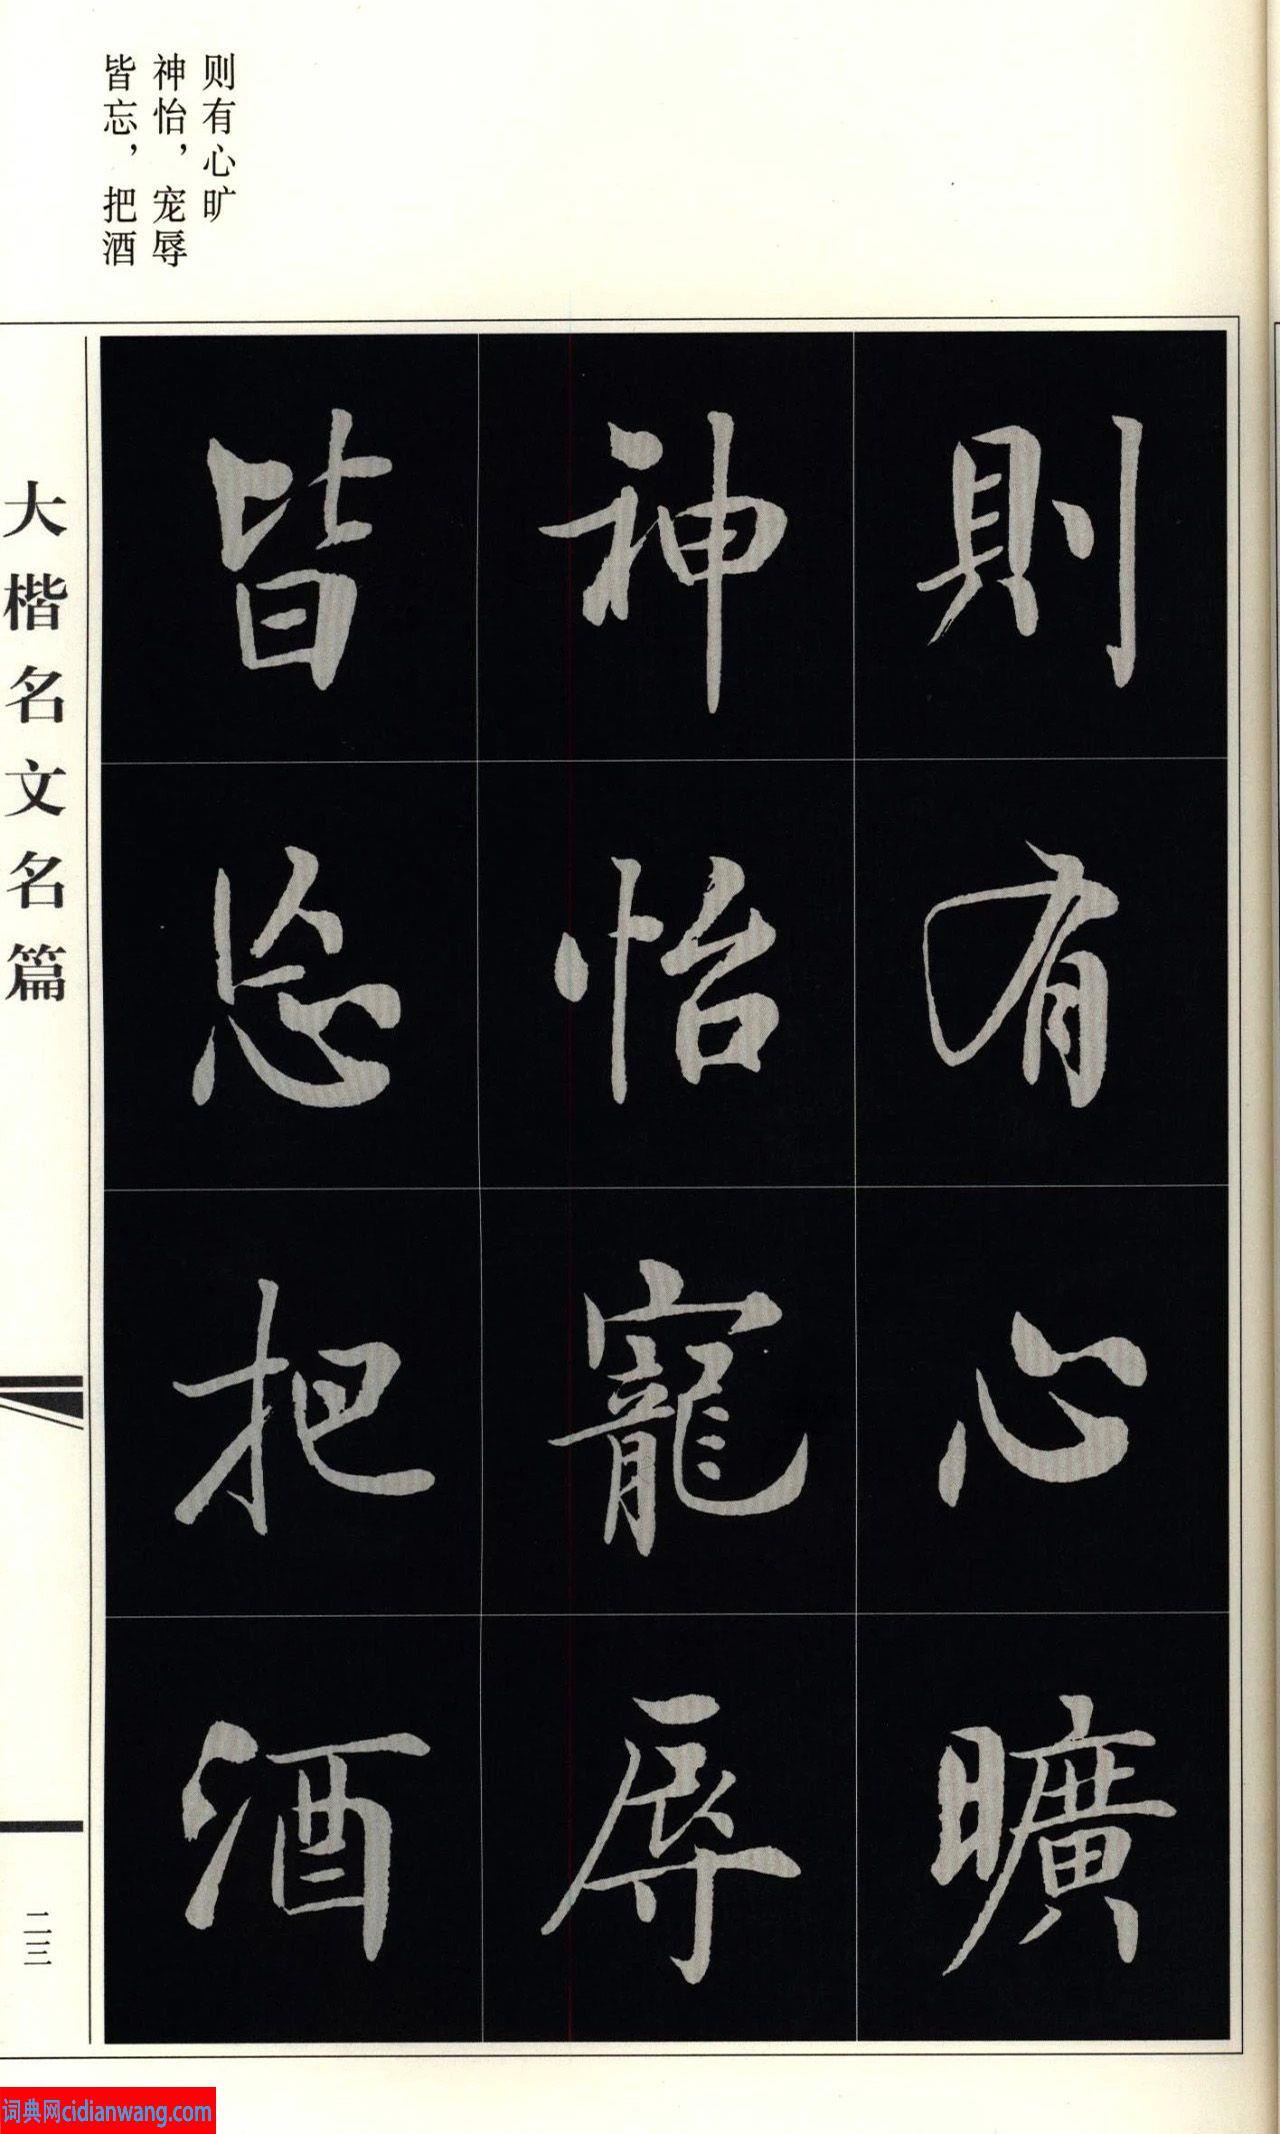 则有心旷
神怡，宠辱
皆忘，把酒
則有心曠
神怡寵辱
皆忘把酒
大楷名文名篇
二三
词典网cidianwang.com